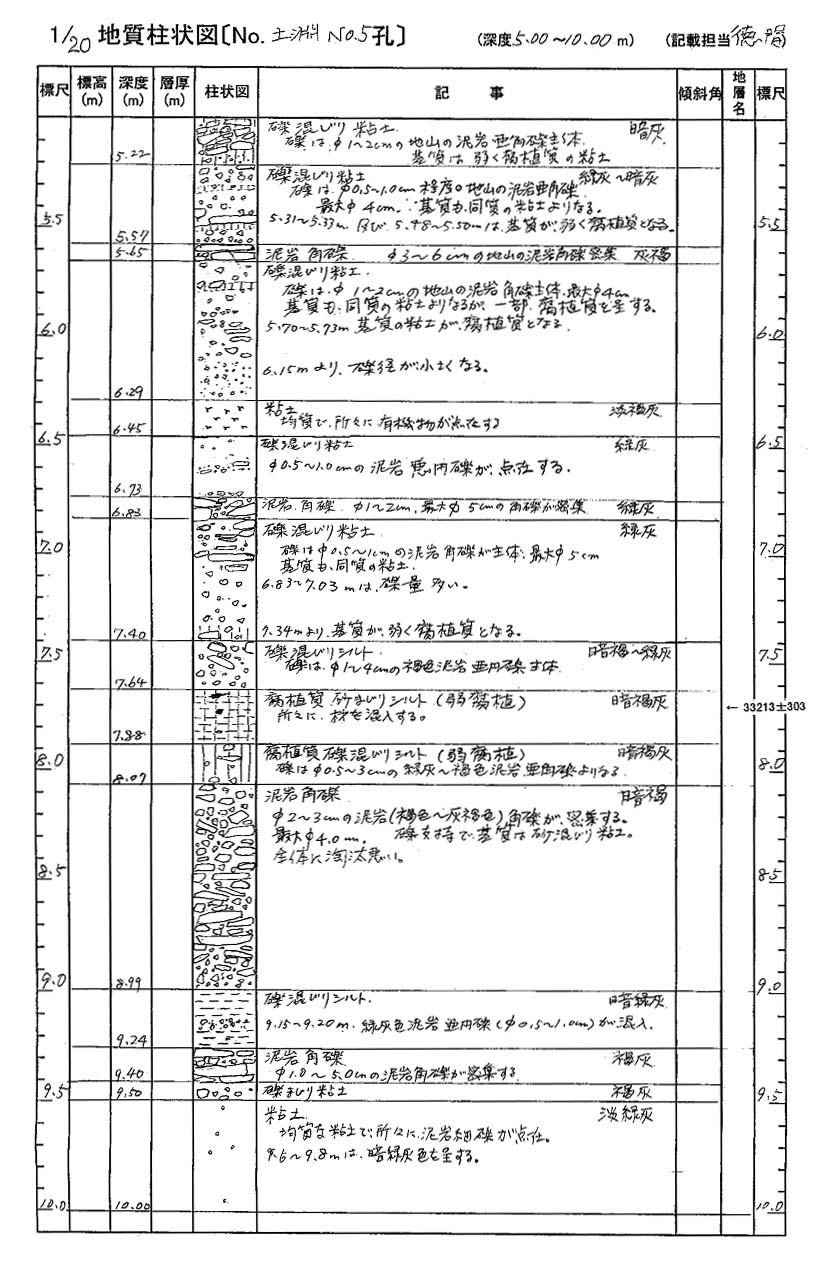 1/20 地質柱状図〔No. 土渕 No.5孔〕 (深度5.00～10.00 m) (記載担当 徳)
標尺 標高(m) 深度(m) 層厚(m) 柱状図 記事 傾斜角 地層名 標尺
礫混じり粘土 暗灰
礫は、φ1～2cmの地山の泥岩亜角礫主体.
5.22 基質は弱く腐植質の粘土
礫混じり粘土 緑灰～暗灰
礫は、φ0.5～1.0cm程度の地山の泥岩亜角礫.
最大φ4cm. 基質も、同質の粘土よりなる。
5.5 5.31～5.33m. 及び 5.48～5.50mは、基質が弱く腐植質となる。 5.5
5.57
5.65 泥岩角礫 φ3～6cmの地山の泥岩角礫密集 灰褐
礫混じり粘土.
礫は、φ1～2cmの地山の泥岩角礫主体、最大φ4cm
基質も、同質の粘土よりなるが、一部、腐植質を呈する。
6.0 5.70～5.73m 基質の粘土が、腐植質となる. 6.0
6.15mより、礫径が小さくなる。
6.29
粘土 淡褐灰
均質で、所々に有機物が点在する
6.45
6.5 礫混じり粘土 緑灰 6.5
φ0.5～1.0cmの泥岩亜円礫が、点在する.
6.73
泥岩角礫 φ1～2cm, 最大φ5cmの角礫が密集 緑灰
6.83
礫混じり粘土 緑灰
7.0 礫はφ0.5～1cmの泥岩角礫が主体、最大φ5cm 7.0
基質も、同質の粘土.
6.83～7.03mは、礫量多い。
7.40 7.34mより、基質が、弱く腐植質となる。
7.5 礫混じりシルト 暗褐～緑灰 7.5
礫は、φ1～4cmの褐色泥岩亜円礫主体
7.64
腐植質砂まじりシルト(弱腐植) 暗褐灰
所々に、材を混入する。 ← 33213±303
7.88
8.0 腐植質礫混じりシルト(弱腐植) 暗褐灰 8.0
礫はφ0.5～3cmの緑灰～褐色泥岩亜角礫よりなる
8.07
泥岩角礫 暗褐
φ2～3cmの泥岩(褐色～灰褐色)角礫が、密集する。
最大φ4.0cm. 礫支持で、基質は砂混じり粘土。
全体に淘汰悪い。
8.5 8.5
9.0 8.99 9.0
礫混じりシルト. 暗緑灰
9.15～9.20m. 緑灰色泥岩亜円礫(φ0.5～1.0cm)が混入.
9.24
泥岩角礫 褐灰
9.40 φ1.0～5.0cmの泥岩角礫が密集する
9.5 9.50 礫まじり粘土 褐灰 9.5
粘土 淡緑灰
均質な粘土で、所々に、泥岩細礫が点在.
9.6～9.8mは、暗緑灰色を呈する。
10.0 10.00 10.0